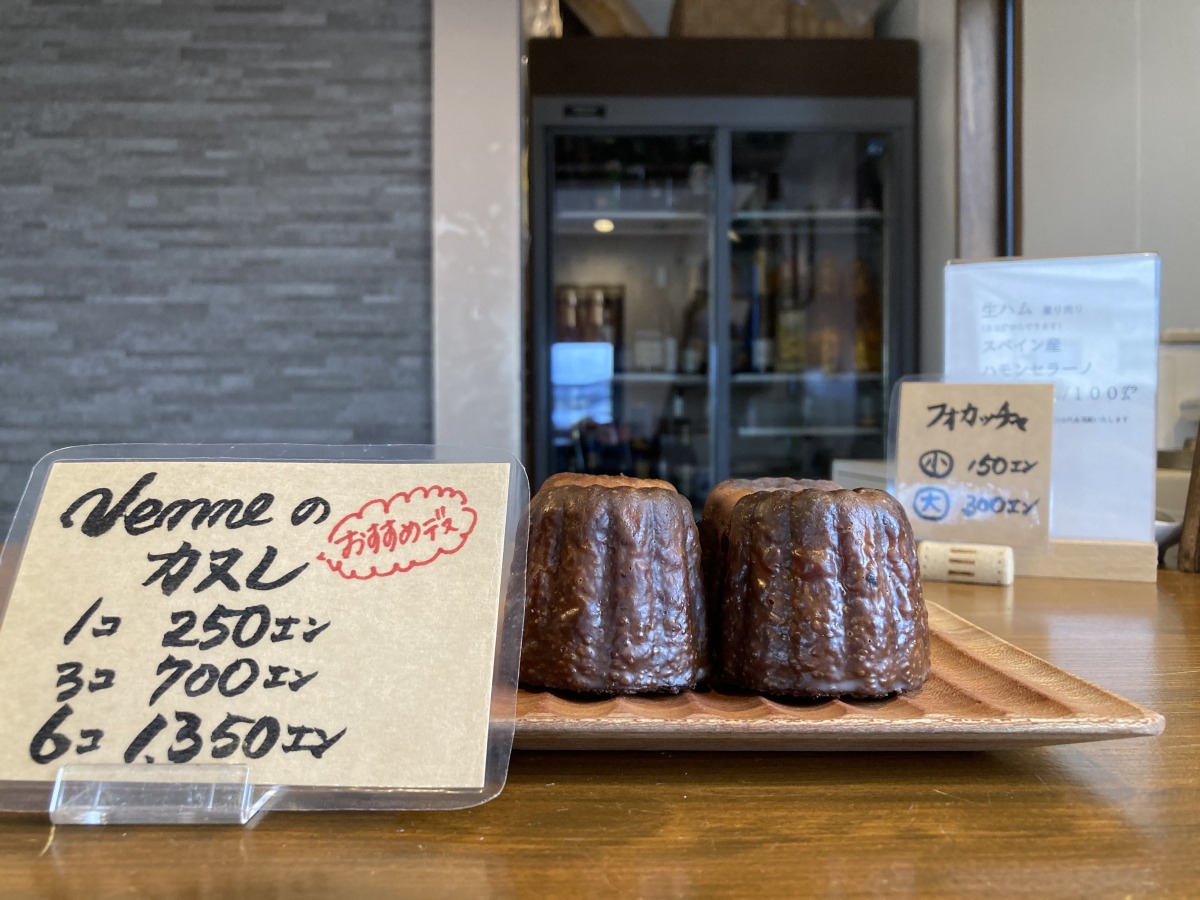 Venneの
カヌレ
おすすめデス
1コ 250エン
3コ 700エン
6コ 1,350エン
フォカッチャ
小 150エン
大 300エン
生ハム 量り売り
スペイン産
ハモンセラーノ
/100g